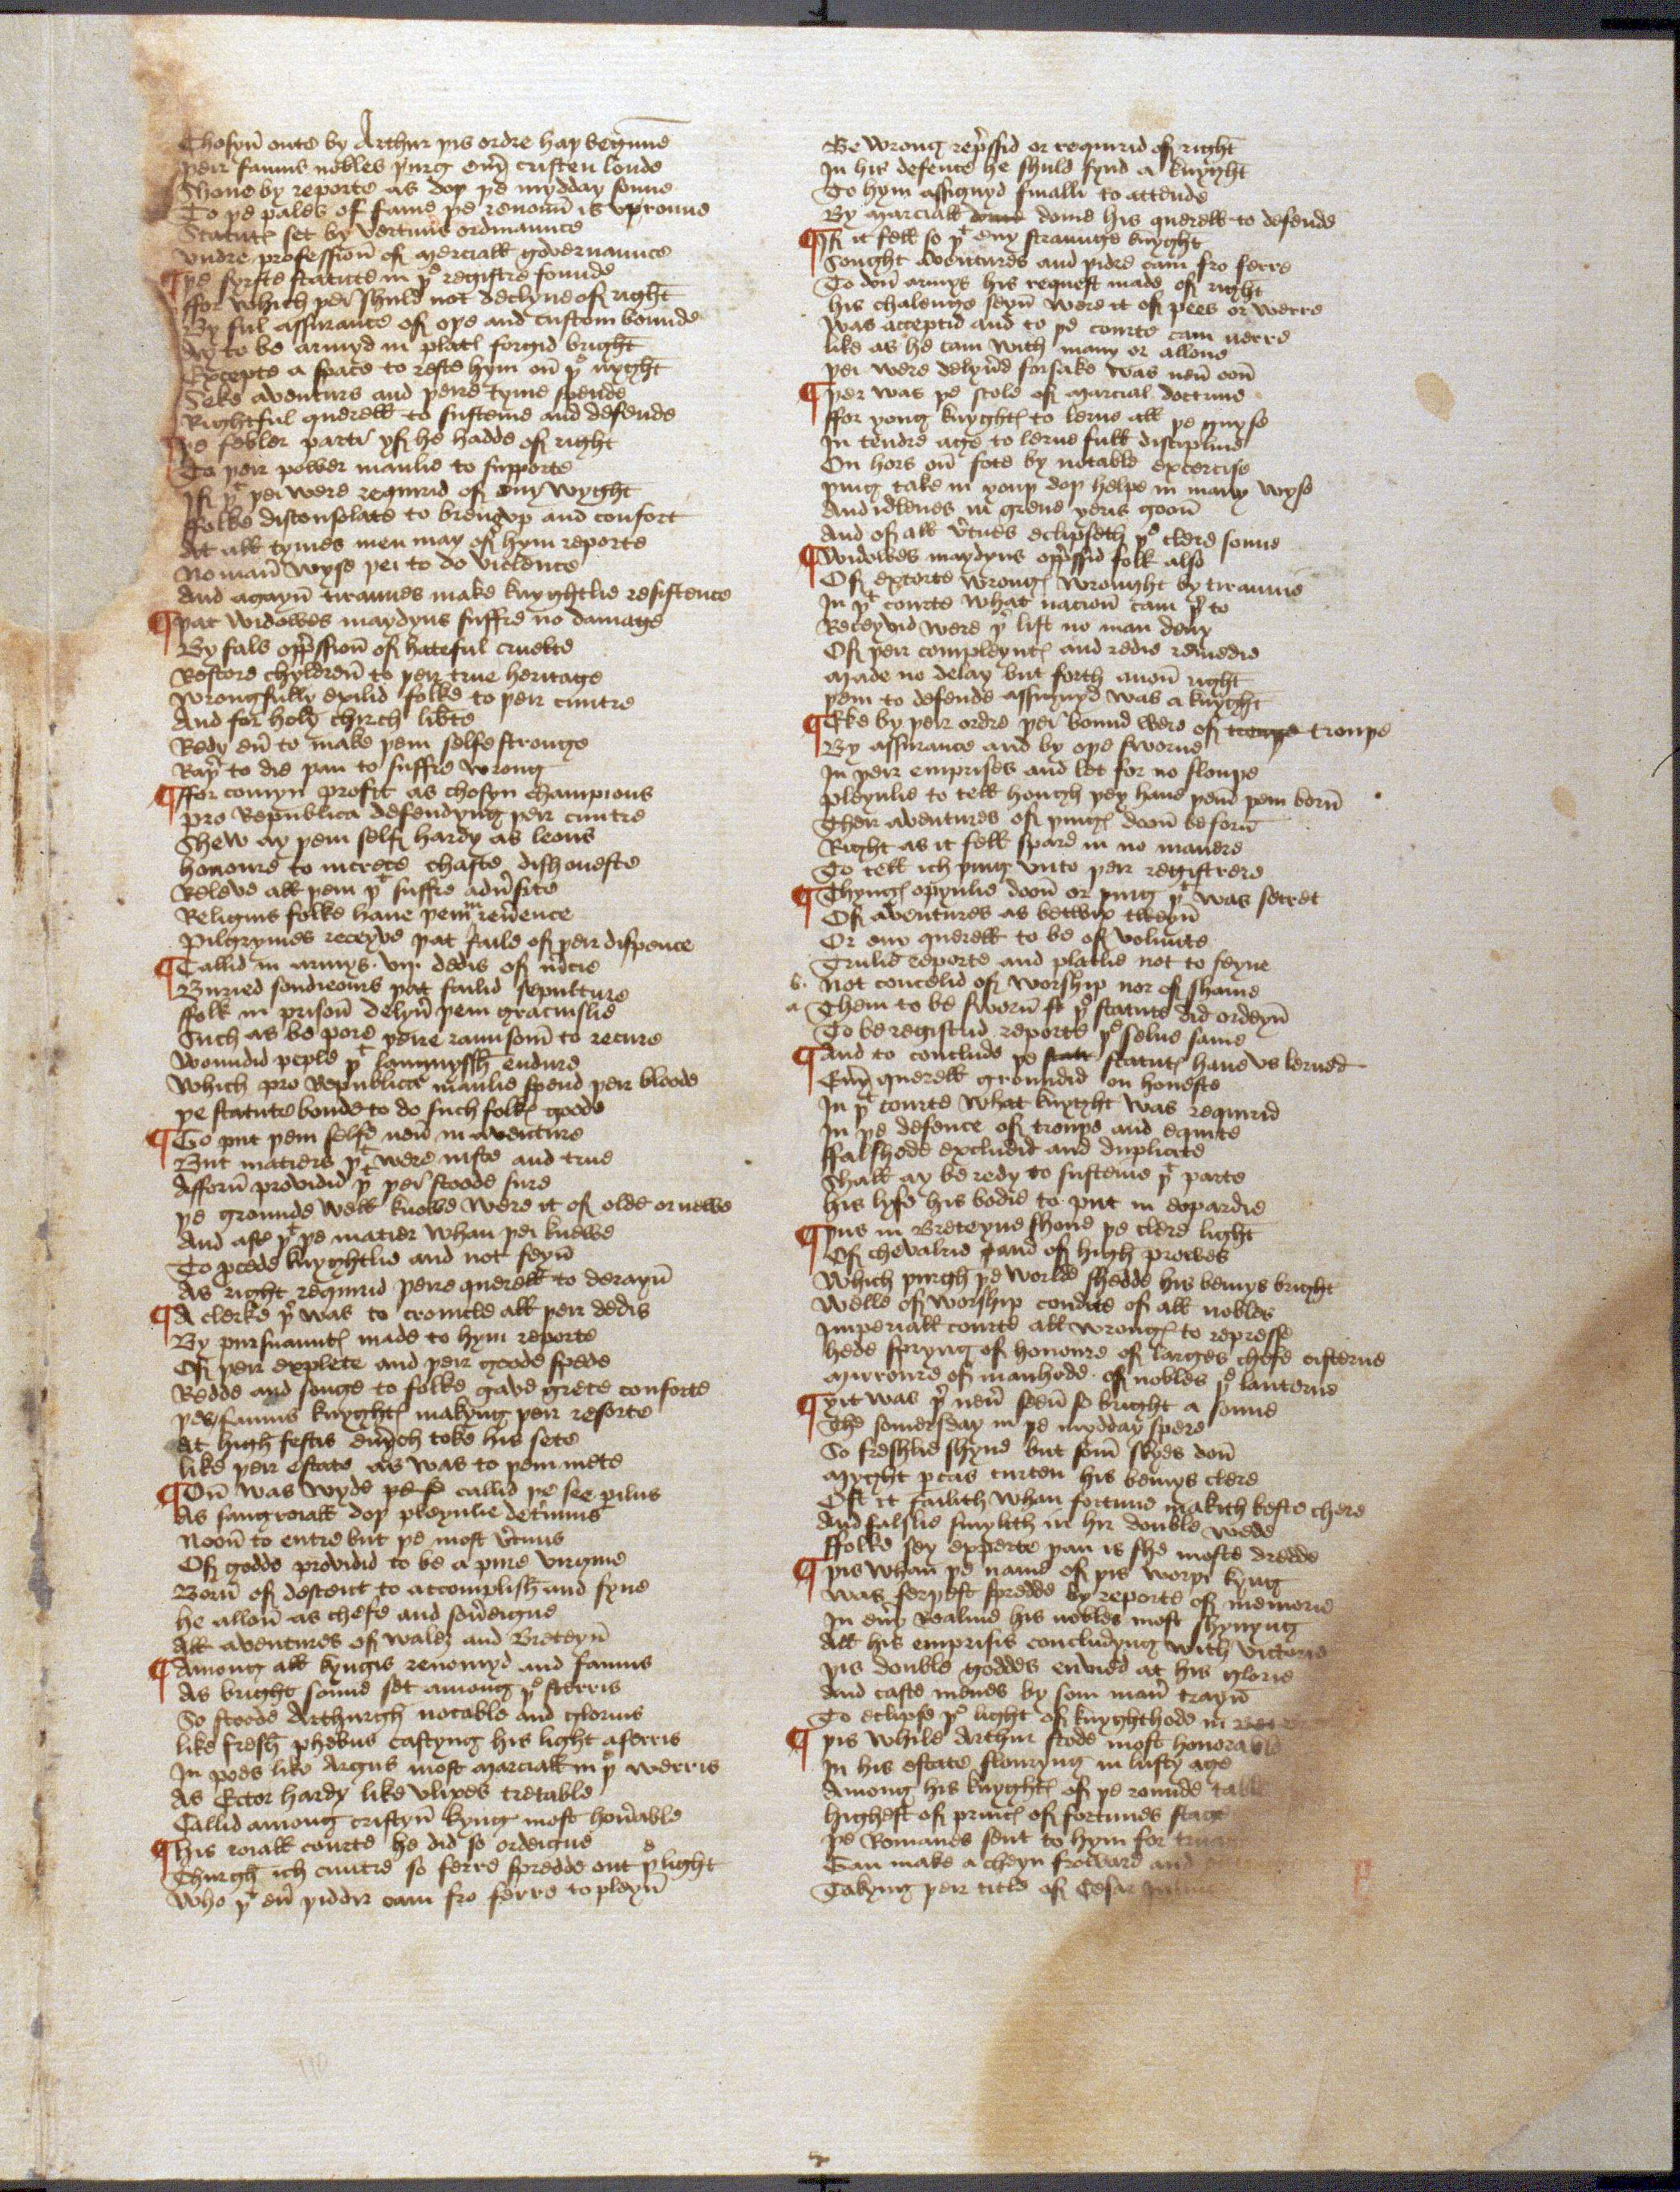 Chosyn oute by Arthur þis ordre haþ begunne
þeir famus nobles þurg eu̅y cristen londe
Shone by reporte as doþ þe mydday sonne
To þe pales of fame þe renoun̅ is upronne
Statutꝭ set by vertuus ordinaunce
vndre profession̅ of merciall governaunce
¶ þe fyrste statute in þͤ registre founde
ffor which þei shuld not declyne of right
By ful assurance of oþe and custom bounde
Ay to be armyd in platꝭ forgid bright
Excepte a space to reste hym on̅ þͤ nyght
Seke aventurs and þeire tyme spende
Rightful querell to susteine and defende
¶ þe febler parti yf he hadde of right
To þeir power manlie to supporte
If þͭ þei were requirid of eny wyght
ffolke disconsolate to breng vp and confort
At all tymes men may of hym reporte
No man̅ wyse þei to do violence
And agayn̅ tirannes make knyghtlie resistence
¶ þat widowes maydyns suffre no damage
By fals opp̅ssion̅ of hateful cruelte
Restore chyldren̅ to þeir true heritage
wrongfully exilid folke to þeir cuntre
And for holy chirch lib̅te
Redy eu̅ to make þem selfe stronge
Raþ̅ to die þan to suffre wrong
¶ ffor comyn profit as chosyn champions
pro Republica defendyng þeir cuntre
Shew ay þem self hardy as leons
honoure to increce chaste dishoneste
Releve all þem þͭ suffre adu̅site
Religius folke haue þem in reu̅ence
Pilgrymes receyve þat faile of þeir dispence
¶ Callid in armys . vij . dedis of m̅cie
Buried soudieours þat failid sepulture
ffolk in prison̅ delyu̅ þem graciuslie
Such as be pore þeire raunsom̅ to recure
Woundid peple þͭ langwyssh̅ endure
Which pro Republice manlie spend þeir bloode
þe statute bonde to do such folkꝭ goode
¶ To put þem selfe neu̅ in aventure
But matiers þͭ were iuste and true
Afforn̅ providid þͭ þei stoode sure
þe grounde well knowe were it of olde or newe
And aft̅ þͭ þe matier whan þei knewe
To p̅cede knyghtlie and not feyn̅
As right requirid þeire querell to derayn̅
¶ A clerke þ̅ was to cronicle all þeir dedis
By pursuauntꝭ made to hym reporte
Of þeir explete and þeir goode spede
Redde and songe to folke gave grete conforte
þes famus knyghtꝭ makyng þeir resorte
At high̅ festis eu̅ych toke his sete
like þeir estate as was to þem mete
¶ On̅ was wyde þe se callid þe see p̅ilus
As sangroiall doþ pleynlie det̅mine
Noon̅ to entre but þe most v̅tuus
Of godde providid to be a pure virgine
Born̅ of descent to accomplish̅ and fyne
he allon̅ as chefe and sou̅eigne
All aventures of walez and Breteyn̅
¶ Among all kyngis renomyd and famus
As bright sonne set among þͤ sterris
So stoode Arthurgh̅ notable and glorius
like fresh̅ phebus castyng his light aferris
In pees like Argus most marciall in þͤ werris
As Ector hardy like vlixes tretable
Callid among cristyn̅ kyng most honu̅able
¶ his roiall courte he did so ordeigne
Thurgh̅ ich cuntre so ferre spredde out þͤ light
Who þͭ eu̅ þiddir cam fro ferre to pleyn̅
Be wrong rep̅ssid or requirid of right
In his defence he shuld fynd a knyght
To hym assignyd finalli to attende
By marciall dome dome his querell to defende
¶ If it fell so þͭ eny straunge knyght
Sought aventures and þidre cam fro ferre
To don̅ armys his request made of right
his chalenge seyn̅ were it of pees or werre
was acceptid and to þe courte cam nerre
like as he cam with many or allone
þei were delyu̅d forsake was neu̅ oon̅
¶ þer was þe scole of marcial doctrine
ffor yong knyghtꝭ to lerne all þe guyse
In tendre age to lerne full discipline
On hors on̅ fote by notable excercise
þing take in youþ doþ helpe in many wyse
And idlenes in grene yeris goon̅
And of all v̅tues eclipseth þͤ clere sonne
¶ Widowes maydyns opp̅ssid folk also
Of extorte wrongꝭ wrought by tirannie
In þͭ courte what nacion̅ cam þ̅ to
Receyvid were þ̅ list no man deny
Of þeir compleyntꝭ and redie remedie
made no delay but forth anon̅ right
þem to defende assignyd was a knyght
¶ Eke by þeir ordre þei bound were of trouþe trouþe
By assurance and by oþe sworne
In þeir emprises and let for no slouþe
pleynlie to tell hough þey haue þem̅ þem born̅
Their aventures of þingꝭ doon̅ beforn̅
Right as it fell spare in no manere
To tell ich þing vnto þeir registrere
¶ Thyngꝭ opynlie doon̅ or þing þͭ was secret
Of aventures as betwix tweyn̅
Or eny querell to be of volunte
Trulie reporte and platlie not to feyne
b. Not concelid of worship nor of shame
a Them to be sworn̅ st þͤ statute did ordeyn̅
To be registrid reporte þͤ selue same
¶ And to conclude þe statt statutꝭ haue vs lerned
Eu̅y querell groundid on honeste
In þͭ courte what knyght was requirid
In þe defence of trouþe and equite
ffalshede excludid and duplicite
Shall ay be redy to susteine þͭ parte
his lyfe his bodie to put in eopardie
¶ þus in Breteyne shone þe clere light
Of chevalrie and of high̅ prowes
which þurgh̅ þe worlde shedde his bemys bright
welle of worship condite of all nobles
Imperiall courte all wrongꝭ to represse
hede spryng of honoure of larges chefe cisterne
mirroure of manhode of nobles þͤ lanterne
¶ yit was þ̅ neu̅ seen̅ so bright a sonne
The somersday in þe mydday spere
So freshlie shyne but som̅ skyes don̅
myght p̅cas curten his bemys clere
Oft it failith whan fortune makith beste chere
And falslie smylith in hir double wede
ffolke sey experte þan is she moste dredde
¶ þis whan̅ þe name of þis worþi kyng
was ferþest spredde by reporte of memorie
In eu̅y Realme his nobles most shynyng
All his emprisis concludyng with victorie
þis double goddes envied at his glorie
And caste menes by som man̅ trayn̅
To eclipse þͤ light of knyghthode in
¶ þis while Arthur stode most honorable
In his estate flouryng in lusty age
Among his knyghtꝭ of þe rounde table
highest of princꝭ of fortunes stage
þe Romanes sent to hym for
Gan make a cheyn froward and
Takyng þeir title of Cesar